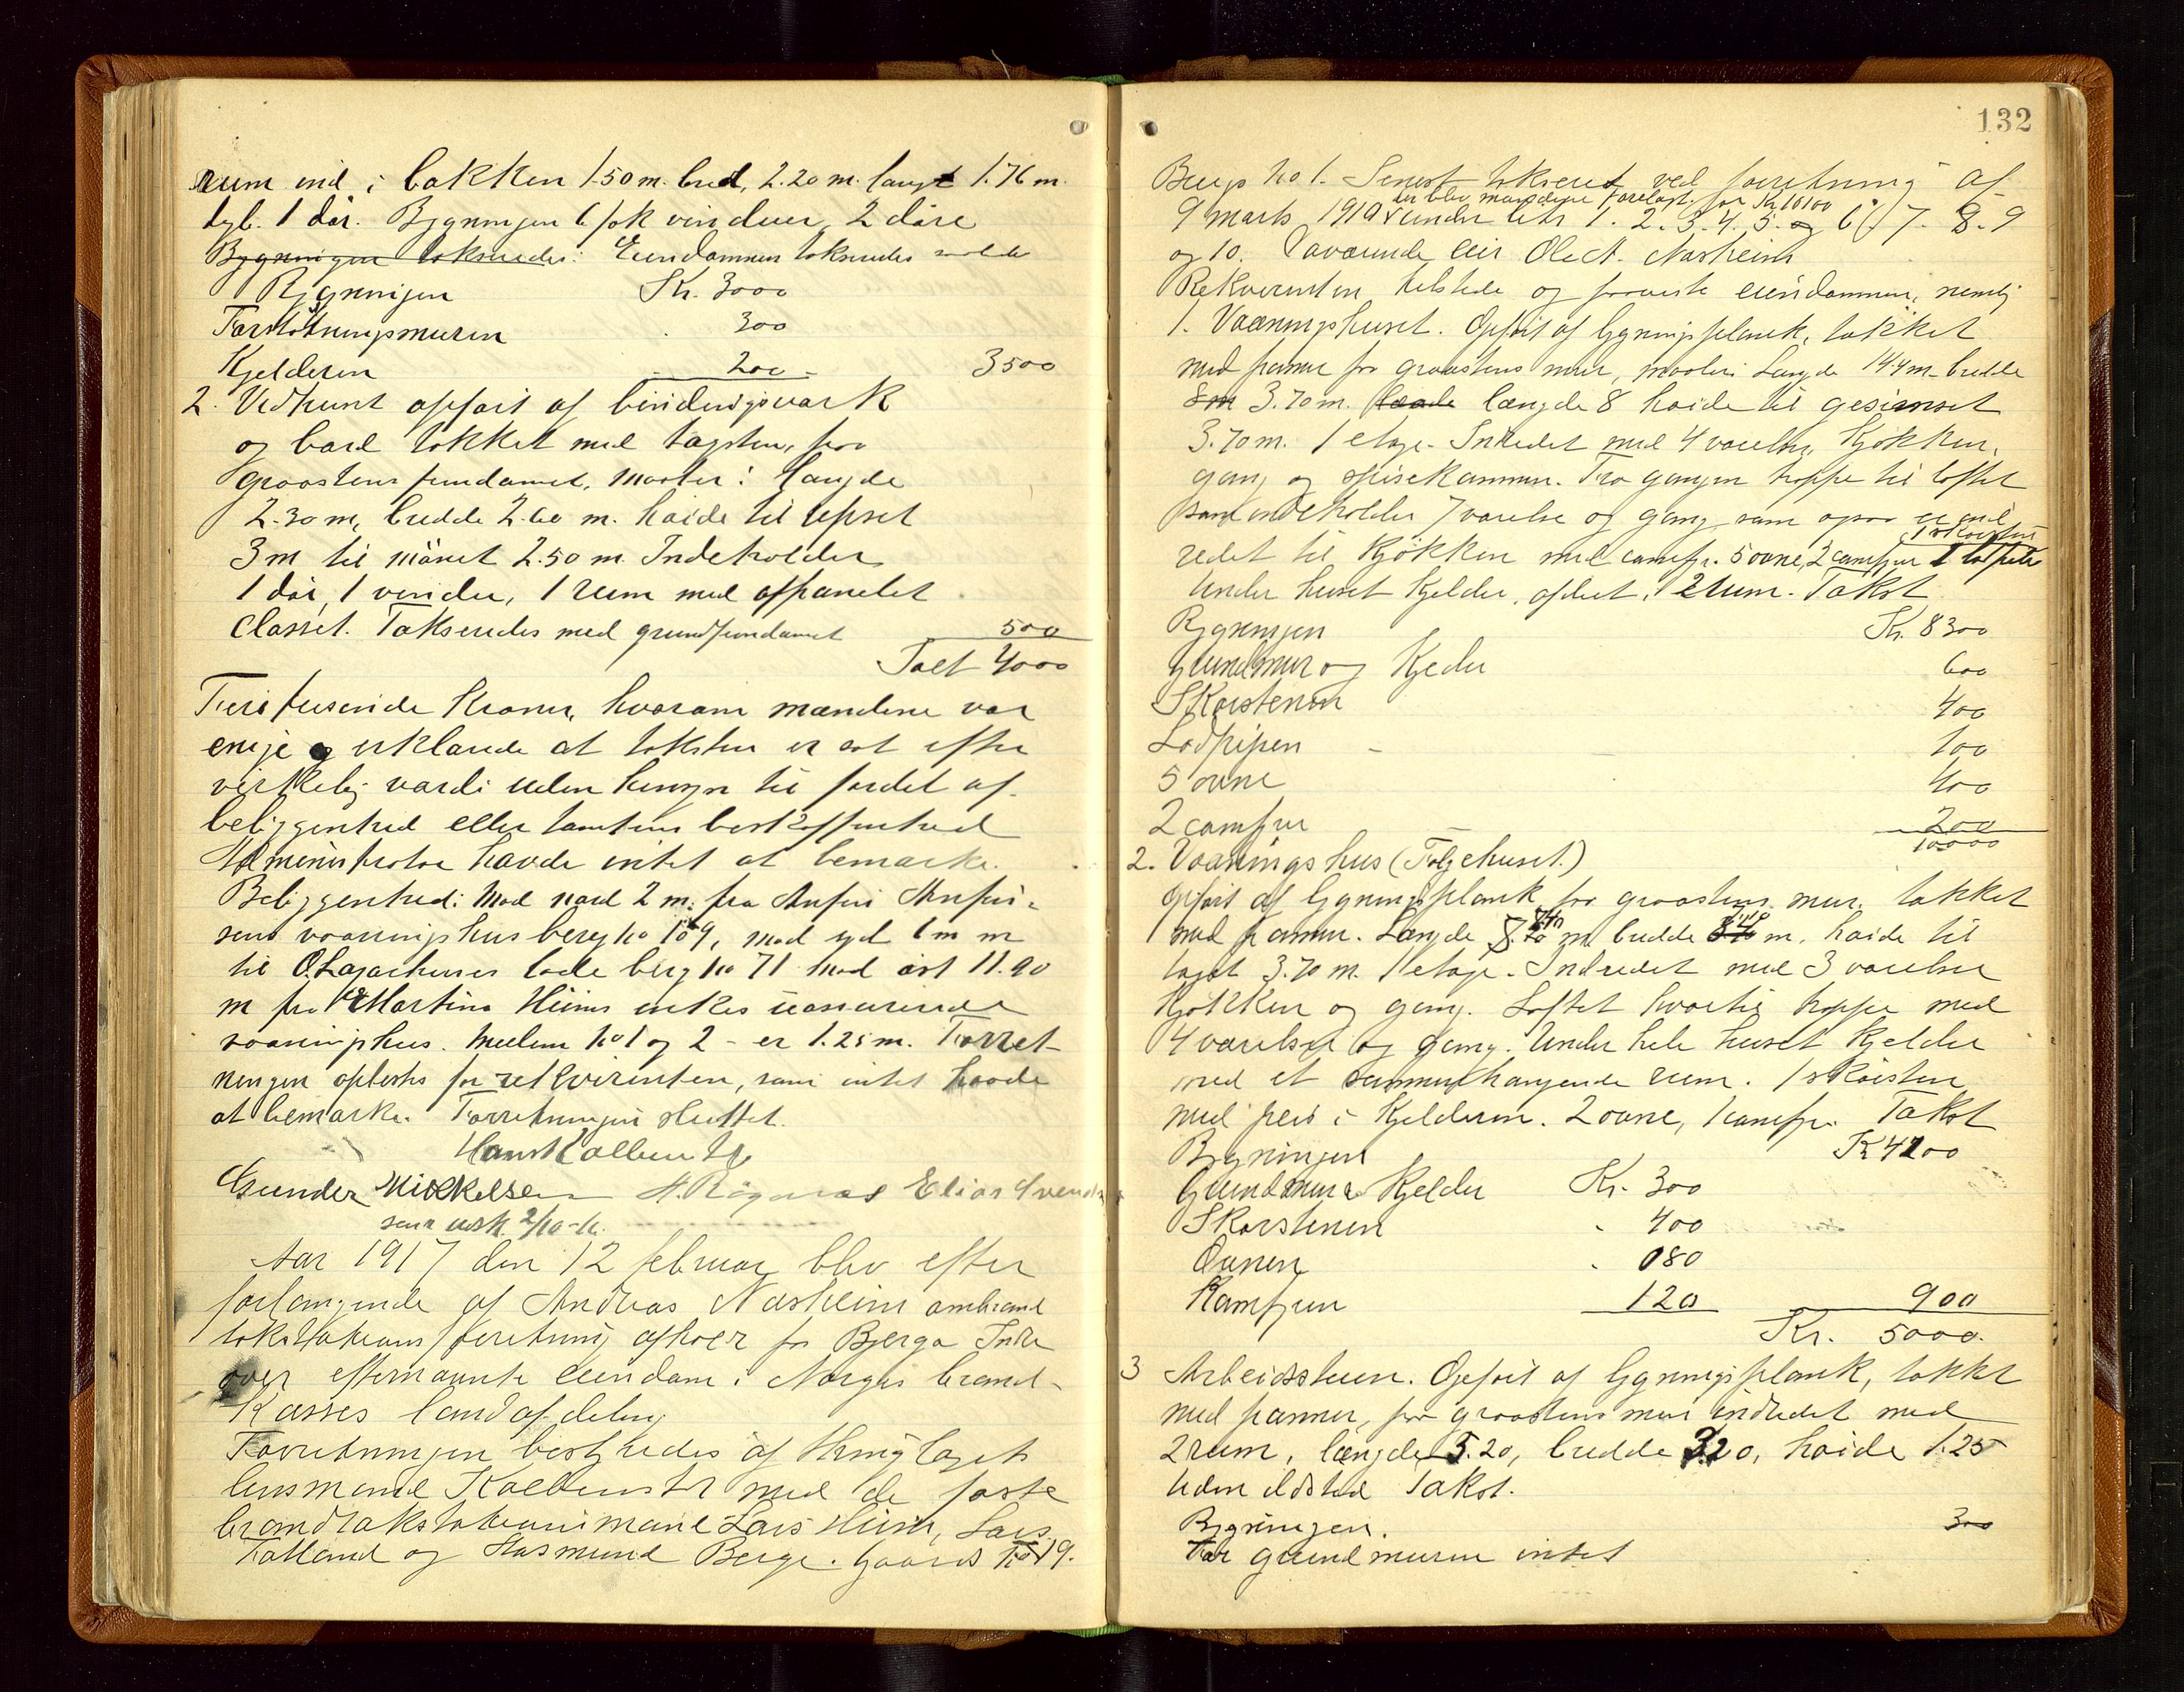 rum ind i bakken 1.50 m. bred, 2.20 m. langt 1.76 m.
dyb. 1 dör. Bygningen 6 fok vinduer, 2 döre
Bygningen takseredes: Eiendommen takseredes
Bygningen Kr. 3000
Forstötningsmuren 300
Kjelderen 200 - 3500
2. Vedhunt opfört af bindingsværk
og bord tækket med tagsten, paa
graastens fundament. Maaler i længde
2.30 m, bredde 2.60 m. höide til ufset
3 m til mönet 2.50 m. Indeholder
1 dör, 1 vindu, 1 rum med afpanelet
Closset. Takseredes med grundfundament 500
Ialt 4000
Firetusende Kroner, hvorom mændene var
enige og erklærede at taksten er sat efter
virkelig værdi uden hensyn til fordel af
beliggenhed eller tomtens beskaffenhed
Administrator havde intet at bemærke.
Beliggenhed: Mod nord 2 m. fra Anfin Anfin-
sens vaaningshus berg no 109, mod syd 6 m
til O. Zachariasses lade berg no 71 mod öst 11.90
m fra Martina Hiims enkes uassurerede
vaaningshus. Mellem no 1 og 2 - er 1.25 m. Forret-
ningen oplæstes for rekvirenten, som intet havde
at bemærke. Forretningen sluttet.
Gunder Mikkelsen Elias Svend
Aar 1917 den 12 februar blev efter
forlangende af Andreas Næsheim ombrand
takstationsforretning afholdt paa Bjerga Indre
over efternævnte eiendom i Norges brand-
Kasses landafdeling
Forretningen bestyredes af
lensmand med de faste
brandtakstationsmænd Lars Hiim, Lars
Tatland og Aasmund Berge. Gaards No 19.
132
Brugs No 1. Senest takseret ved forretning af
der blev mændene forelagt for Kr 10100
9 marts 1910 under litr 1. 2. 3. 4. 5. og 6 7. 8. 9
og 10. Daværende eier Ole A. Næsheim
Rekvirenten tilstede og paaviste eiendommen, nemlig
1. Vaaningshuset. Opfört af bygningsplank, tækket
med panner paa graastens mur, maaler i længde 14.4 m bredde
8 m 3.70 m. længde 8 höide til gesimset
3.70 m. 1 etage. Indredet med 4 værelser, Kjökken,
gang og spisekammer. Fra gangen trappe til loftet
som indeholder 7 værelse og gang, som ogsaa er ind
1 skorsten
redet til Kjökken med camfyr. 5 ovne, 2 camfyrer 1 lodpibe
Under huset Kjelder, afdelt i 2 rum. Takst
Bygningen Kr. 8300
Grundmur og Kjeder 600
Skorstenen 400
Lodpipen - 100
5 ovne 400
2 camfyrer 200
10000
2. Vaaningshus (Følgehuset.)
Opfört af bygningsplank paa graastens mur, tækket
med panner. Længde m bredde m. höide til
taget 3.70 m. 1 etage. Indredet med 3 værelser
Kjökken og gang. Loftet hvortil trappe med
4 værelser og gang. Under hele huset Kjelder
med et sammenhængende rum. 1 skorsten
med peis i Kjelderen. 2 ovne, 1 camfyr. Takst
Bygningen Kr 4100
Grundmur & Kjelder Kr. 300
Skorstenen 400
Ovnen 080
Kamfyren 120 900
Kr. 5000.
3 Arbeidsstuen. Opfört af bygningsplank, tækket
med panner, paa graastens mur indredet med
2 rum, længde 5.20, bredde 3.20, höide 1.25
Uden ildsted Takst.
Bygningen. 300
For grundmuren intet